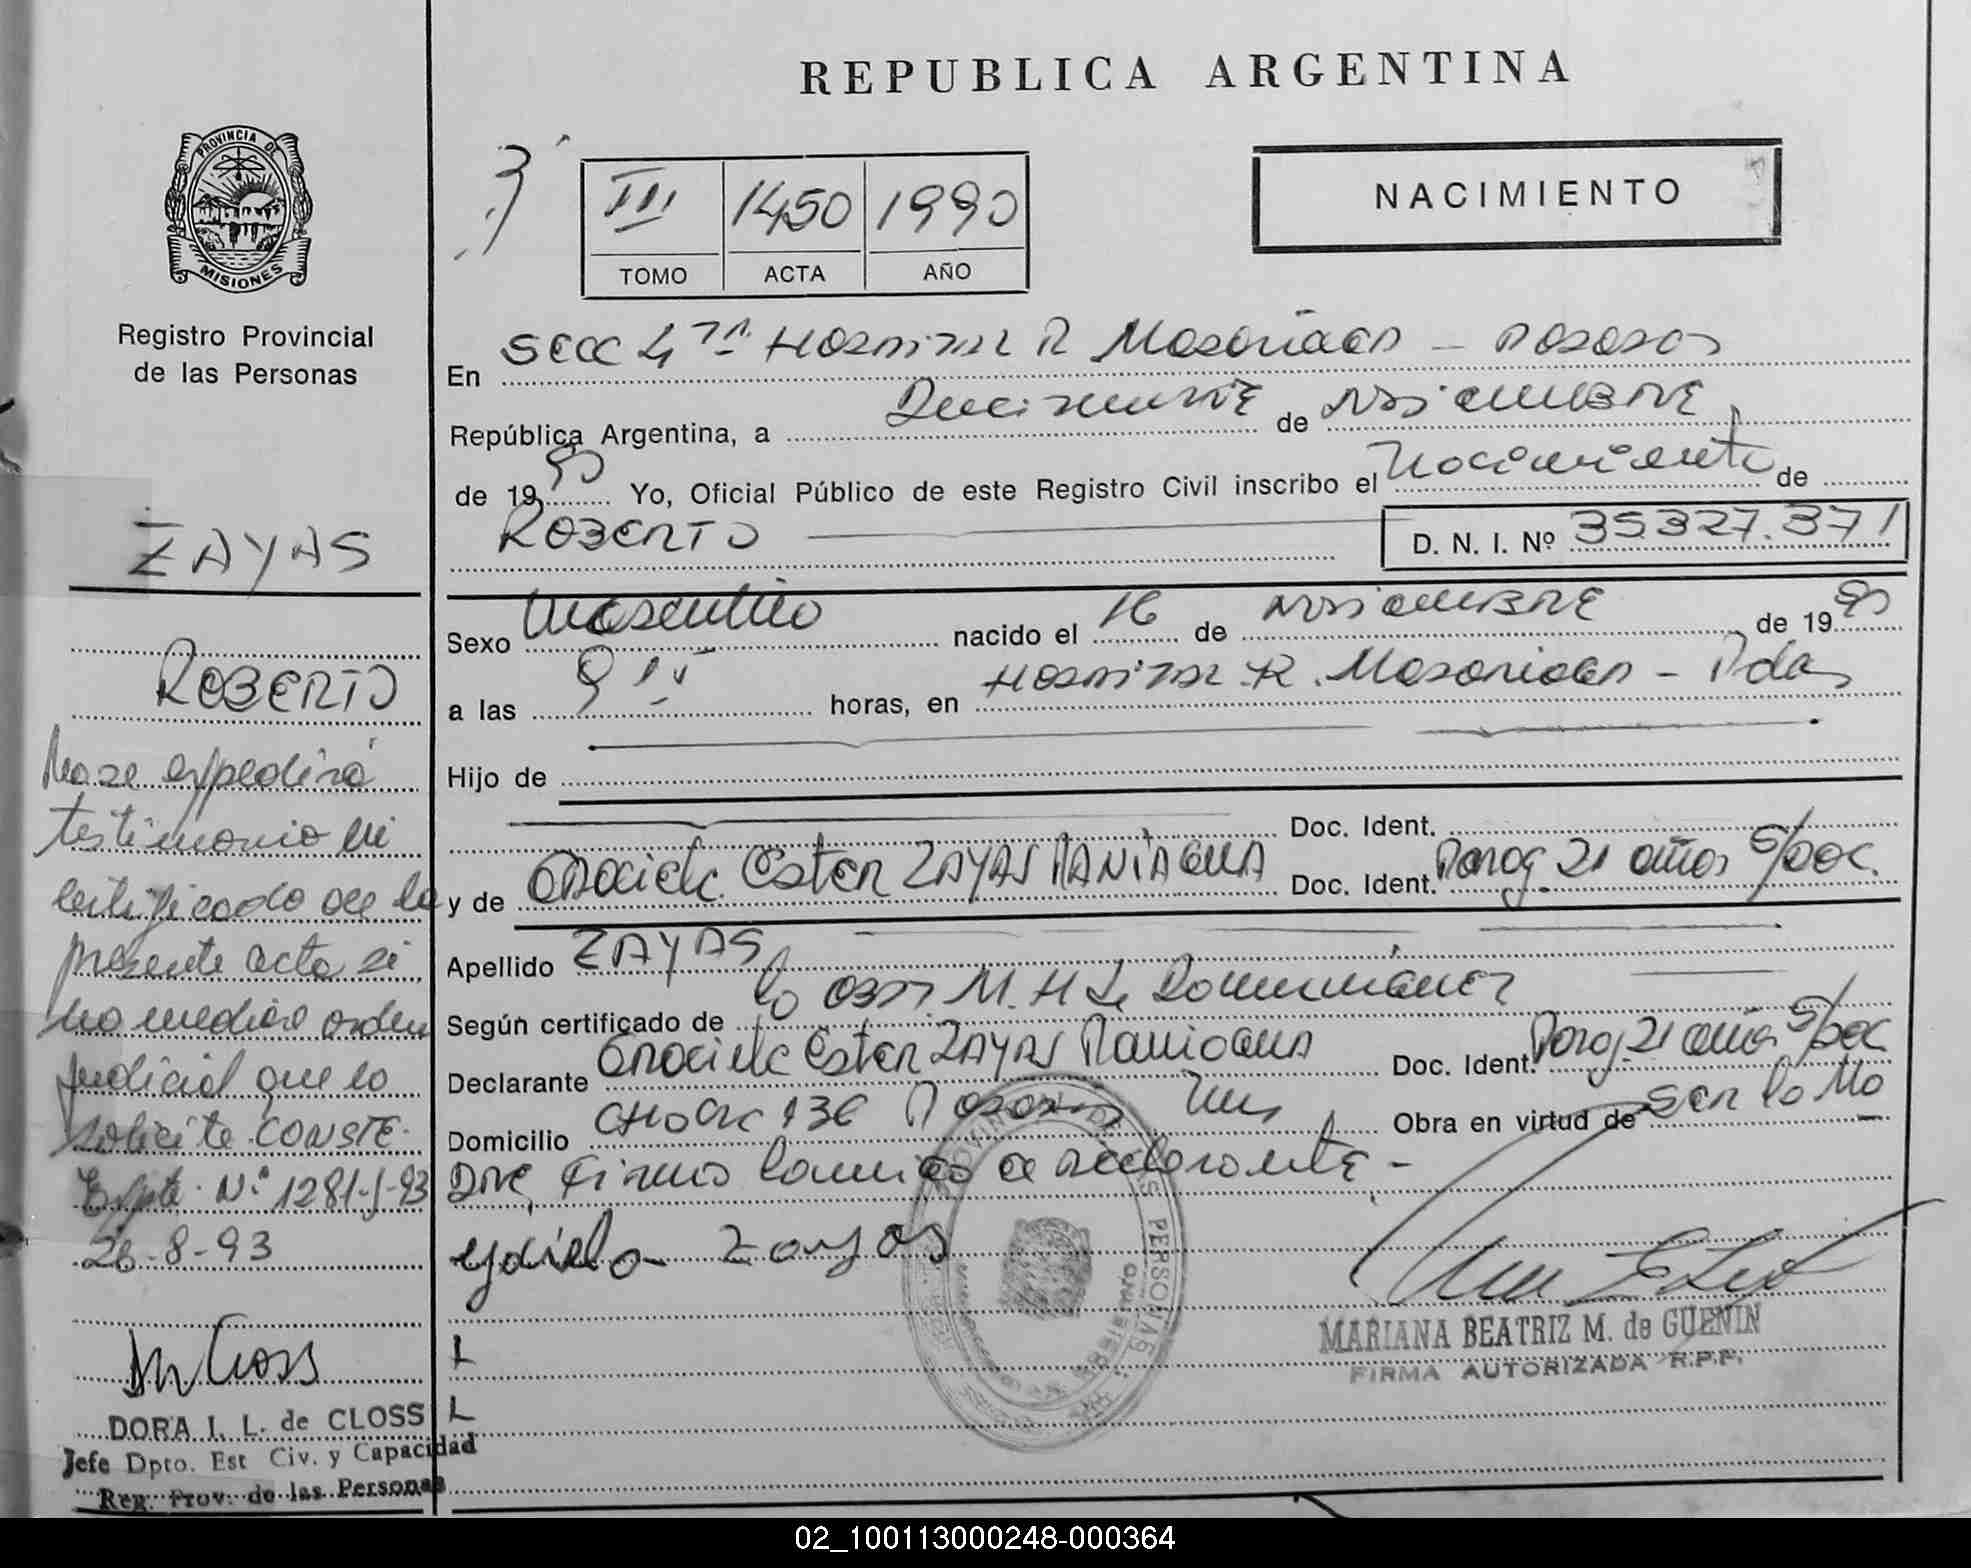 REPUBLICA ARGENTINA
PROVINCIA DE
MISIONES
Registro Provincial
de las Personas
III 1450 1990
TOMO ACTA AÑO
NACIMIENTO
En Secc 4ta Hospital R Madariaga - Posadas
República Argentina, a Diecinueve de Noviembre
de 1990 Yo, Oficial Público de este Registro Civil inscribo el Nacimiento de
ROBERTO D. N. I. Nº 35.327.371
Sexo Masculino nacido el 16 de Noviembre de 1990
a las horas, en Hospital R. Madariaga - Pdas
Hijo de
Doc. Ident.
y de Graciela Ester ZAYAS PANIAGUA Doc. Ident. Parag. 21 años S/Doc.
Apellido ZAYAS
Según certificado de la Obst. M. H de Dominguez
Declarante Graciela Ester ZAYAS Paniagua Doc. Ident. Parag. 21 años S/Doc
Domicilio 136 Posadas Mnes Obra en virtud de Ser la Ma
dre, Firma Conmigo la declarante -
Zayas
MARIANA BEATRIZ M. de GUENIN
FIRMA AUTORIZADA R.P.P.
ZAYAS
ROBERTO
No se expedirá
testimonio ni
certificado de la
presente acta si
no media orden
judicial que lo
solicite. CONSTE.
Expte. Nº 1281-J-93
26-8-93
DORA I. L. de CLOSS
Jefe Dpto. Est Civ. y Capacidad
Reg. Prov. de las Personas
02_100113000248-000364